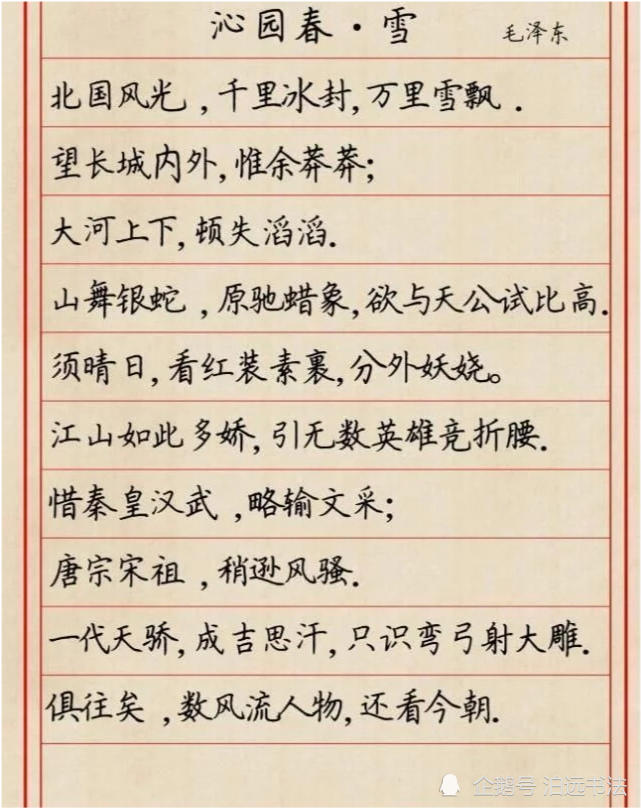 沁园春·雪 毛泽东
北国风光,千里冰封,万里雪飘.
望长城内外,惟余莽莽;
大河上下,顿失滔滔.
山舞银蛇,原驰蜡象,欲与天公试比高.
须晴日,看红装素裹,分外妖娆。
江山如此多娇,引无数英雄竞折腰.
惜秦皇汉武,略输文采;
唐宗宋祖,稍逊风骚.
一代天骄,成吉思汗,只识弯弓射大雕.
俱往矣,数风流人物,还看今朝.
企鹅号 注远书法